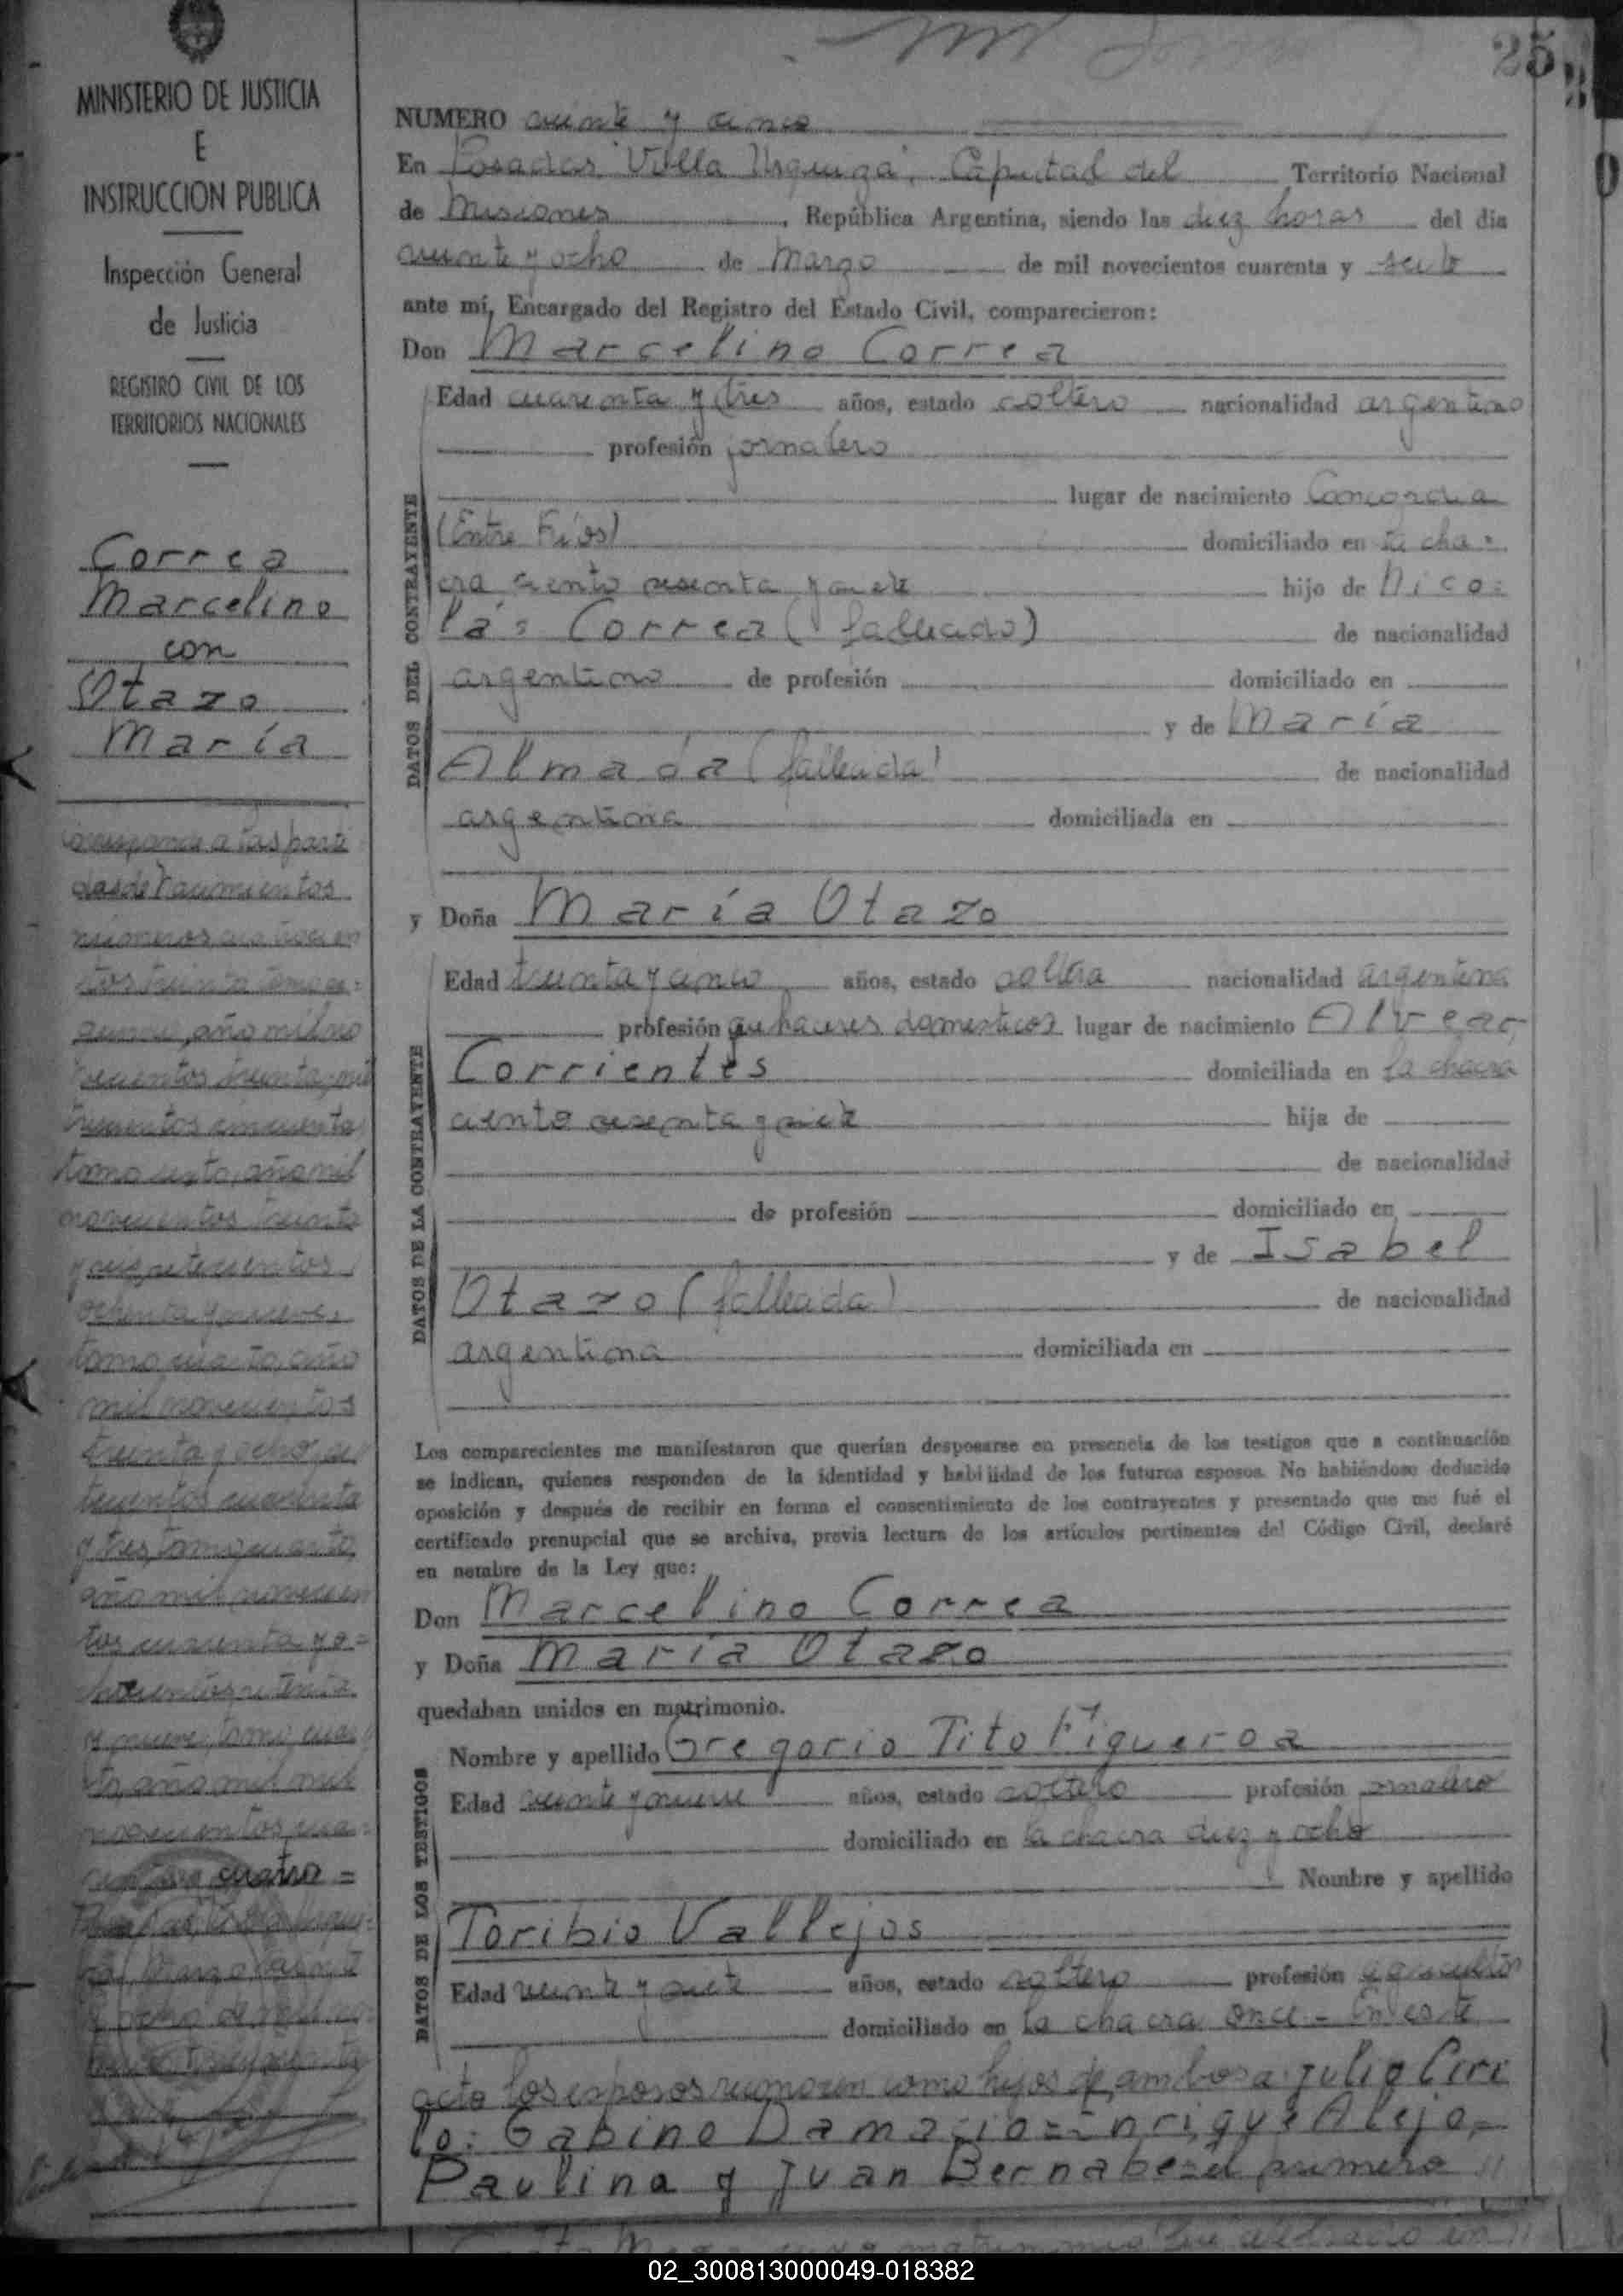 25
MINISTERIO DE JUSTICIA
E
INSTRUCCION PUBLICA
Inspección General
de Justicia
REGISTRO CIVIL DE LOS
TERRITORIOS NACIONALES
Correa
Marcelino
con
Otazo
María
NUMERO veinte y cinco
En Posadas Villa Urquiza, Capital del Territorio Nacional
de Misiones, República Argentina, siendo las diez horas del día
veinte y ocho de Marzo de mil novecientos cuarenta y seis
ante mí, Encargado del Registro del Estado Civil, comparecieron:
Don Marcelino Correa
DATOS DEL CONTRAYENTE
Edad cuarenta y tres años, estado soltero nacionalidad argentino
profesión jornalero
lugar de nacimiento Concordia
(Entre Ríos) domiciliado en la cha-
cra ciento sesenta y siete hijo de Nico-
lás Correa (fallecido) de nacionalidad
argentino de profesión domiciliado en
y de María
Almada (fallecida) de nacionalidad
argentina domiciliada en
y Doña María Otazo
DATOS DE LA CONTRAYENTE
Edad treinta y cinco años, estado soltera nacionalidad argentina
profesión quehaceres domesticos lugar de nacimiento Alvear,
Corrientes domiciliada en la chacra
ciento sesenta y siete hija de
de nacionalidad
de profesión domiciliado en
y de Isabel
Otazo (fallecida) de nacionalidad
argentina domiciliada en
Los comparecientes me manifestaron que querían desposarse en presencia de los testigos que a continuación
se indican, quienes responden de la identidad y habilidad de los futuros esposos. No habiéndose deducido
oposición y después de recibir en forma el consentimiento de los contrayentes y presentado que me fué el
certificado prenupcial que se archiva, previa lectura de los artículos pertinentes del Código Civil, declaré
en nombre de la Ley que:
Don Marcelino Correa
y Doña María Otazo
quedaban unidos en matrimonio.
DATOS DE LOS TESTIGOS
Nombre y apellido Gregorio Tito Figueroa
Edad veinte y nueve años, estado soltero profesión jornalero
domiciliado en la chacra diez y ocho
Nombre y apellido
Toribio Vallejos
Edad veinte y siete años, estado soltero profesión agricultor
domiciliado en la chacra once - En este
acto los esposos reconocen como hijos de ambos a Julio Ciri
lo: Gabino Damacio=Enrique Alejo,=
Paulina y Juan Bernabe=el primero
corresponde a las parti
das de nacimientos
números
tos treinta tomo
año mil no
vecientos treinta, mil
trescientos cincuenta
tomo sexto, año mil
novecientos treinta
y seis, setecientos
ochenta y nueve,
tomo cuarto, año
mil novecientos
treinta y ocho,
cuarenta
y tres, tomo cuarto,
año mil novecien
tos cuarenta y o=
chocientos setenta
y nueve, tomo cuar
to, año mil mil
novecientos cua=
renta y cuatro =
02_300813000049-018382